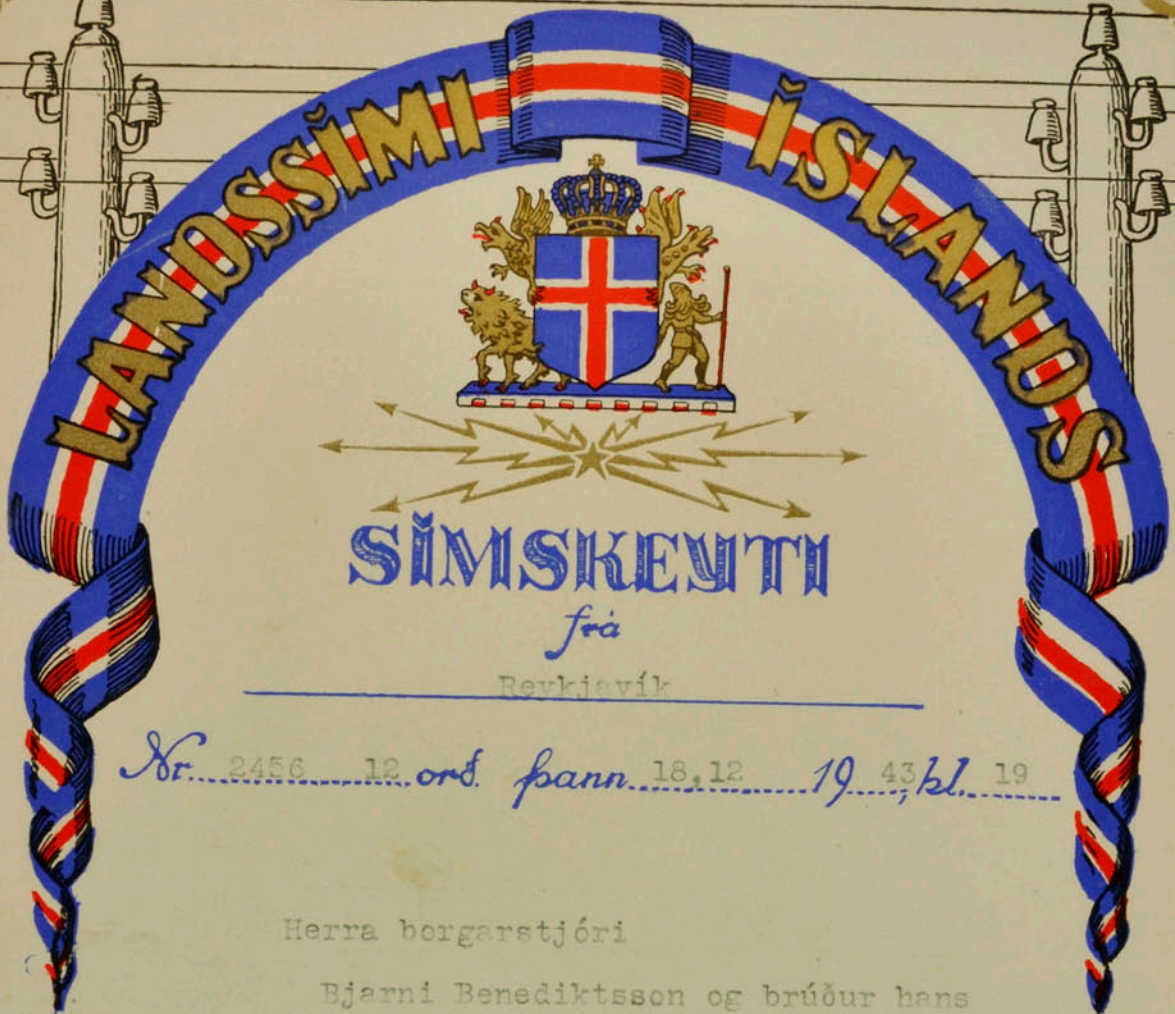 LANDSSÍMI ÍSLANDS
SÍMSKEYTI
frá
Reykjavík
Nr. 2456 12 orð. þann 18,12 19 43, kl. 19
Herra borgarstjóri
Bjarni Benediktsson og brúður hans